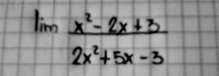 lim x² - 2x + 3
2x² + 5x - 3